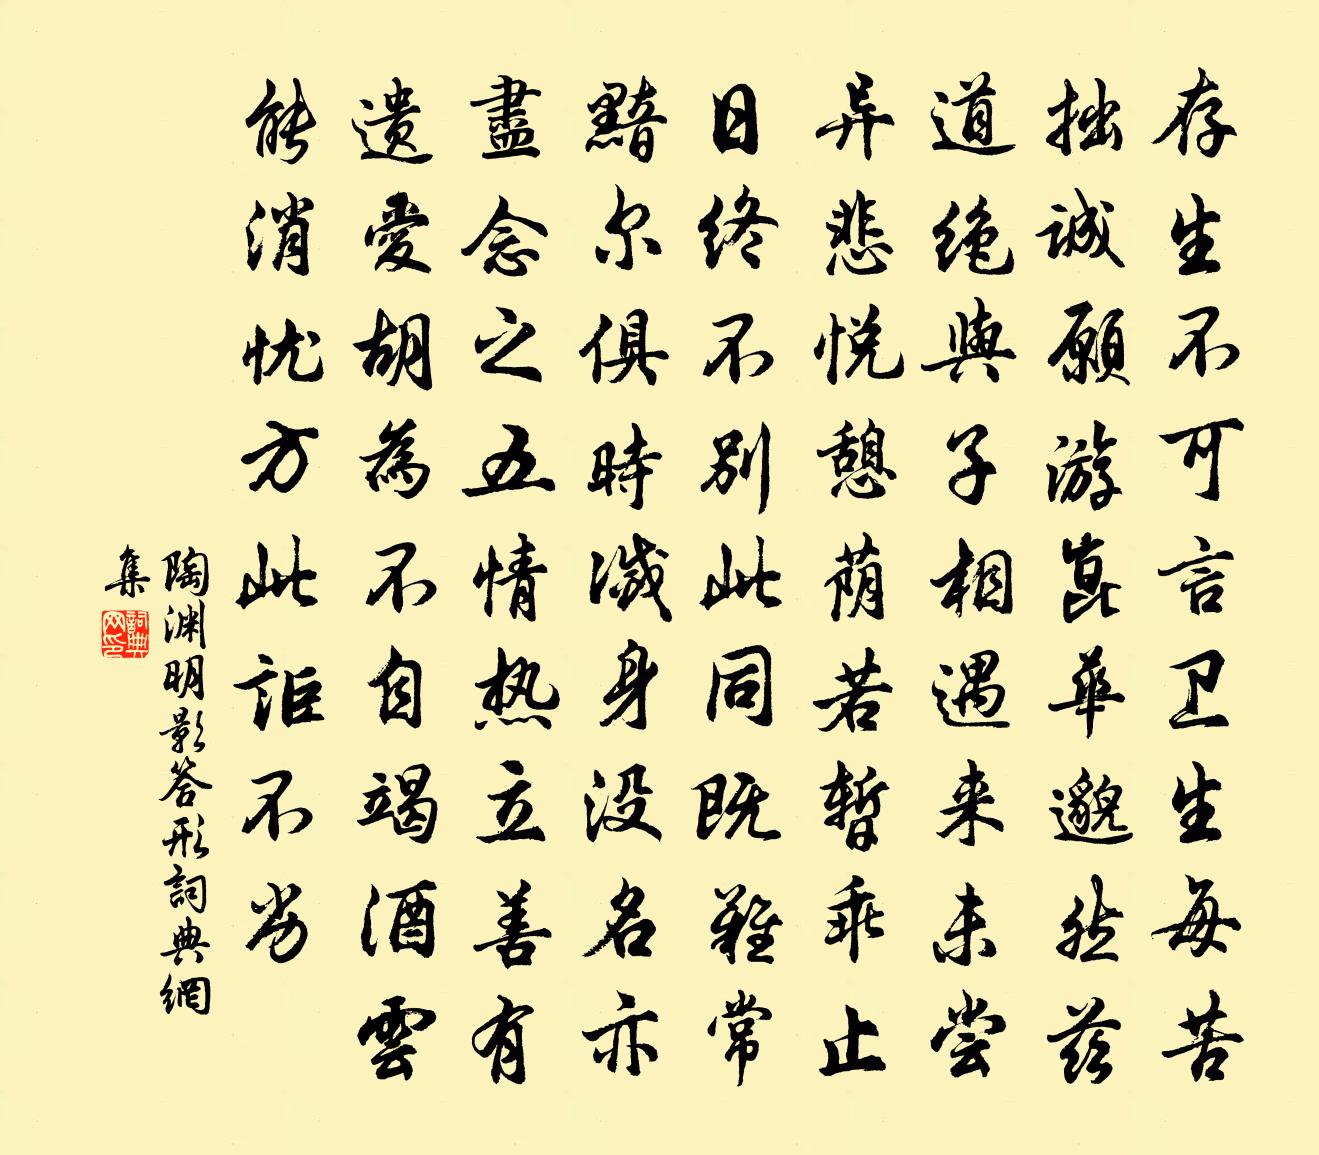 存生不可言卫生每苦
拙诚願游崑華邈然茲
道绝與子相遇来未尝
异悲悦憩荫若暫乖止
日终不别此同既難常
黯尔俱時滅身没名亦
盡念之五情热立善有
遗愛胡為不自竭酒雲
能消忧方此詎不劣
陶渊明影答形詞典網
集
詞典
网印